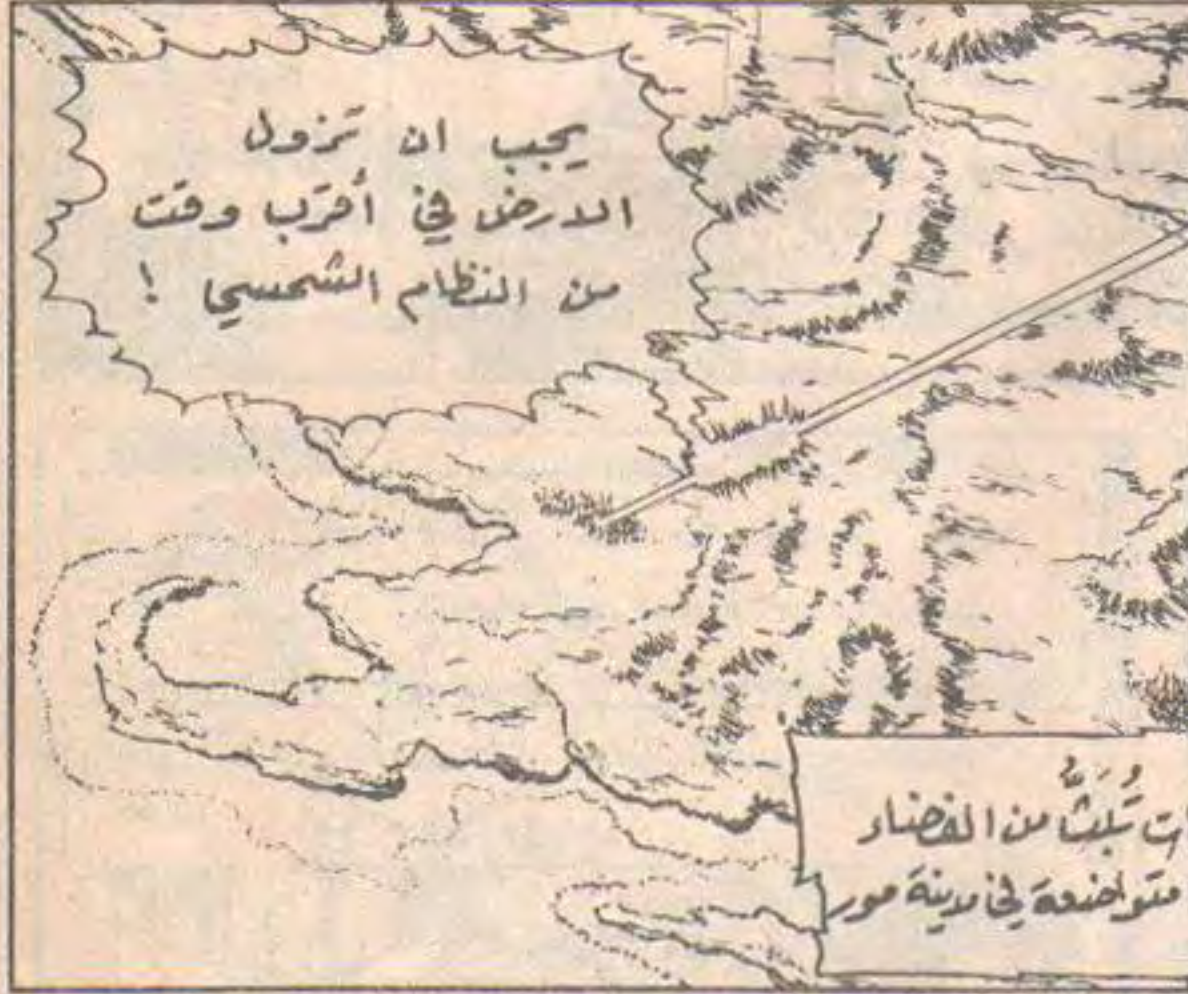 يجب ان تزول
الارض في أقرب وقت
من النظام الشمسي !
تُبَثُّ من الفضاء
متواضعة في مدينة مور